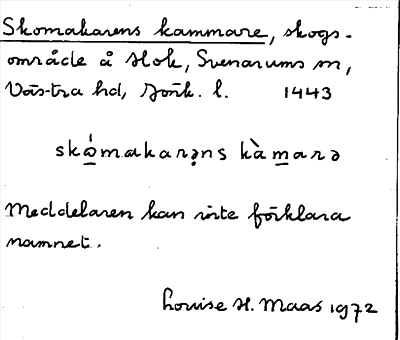 Skomakarens kammare, skogs-
område å Hok, Svenarums sn,
Västra hd, Jönk. l. 1443
skómakarəns kàmarə
Meddelaren kan inte förklara
namnet.
Louise H. Maas 1972